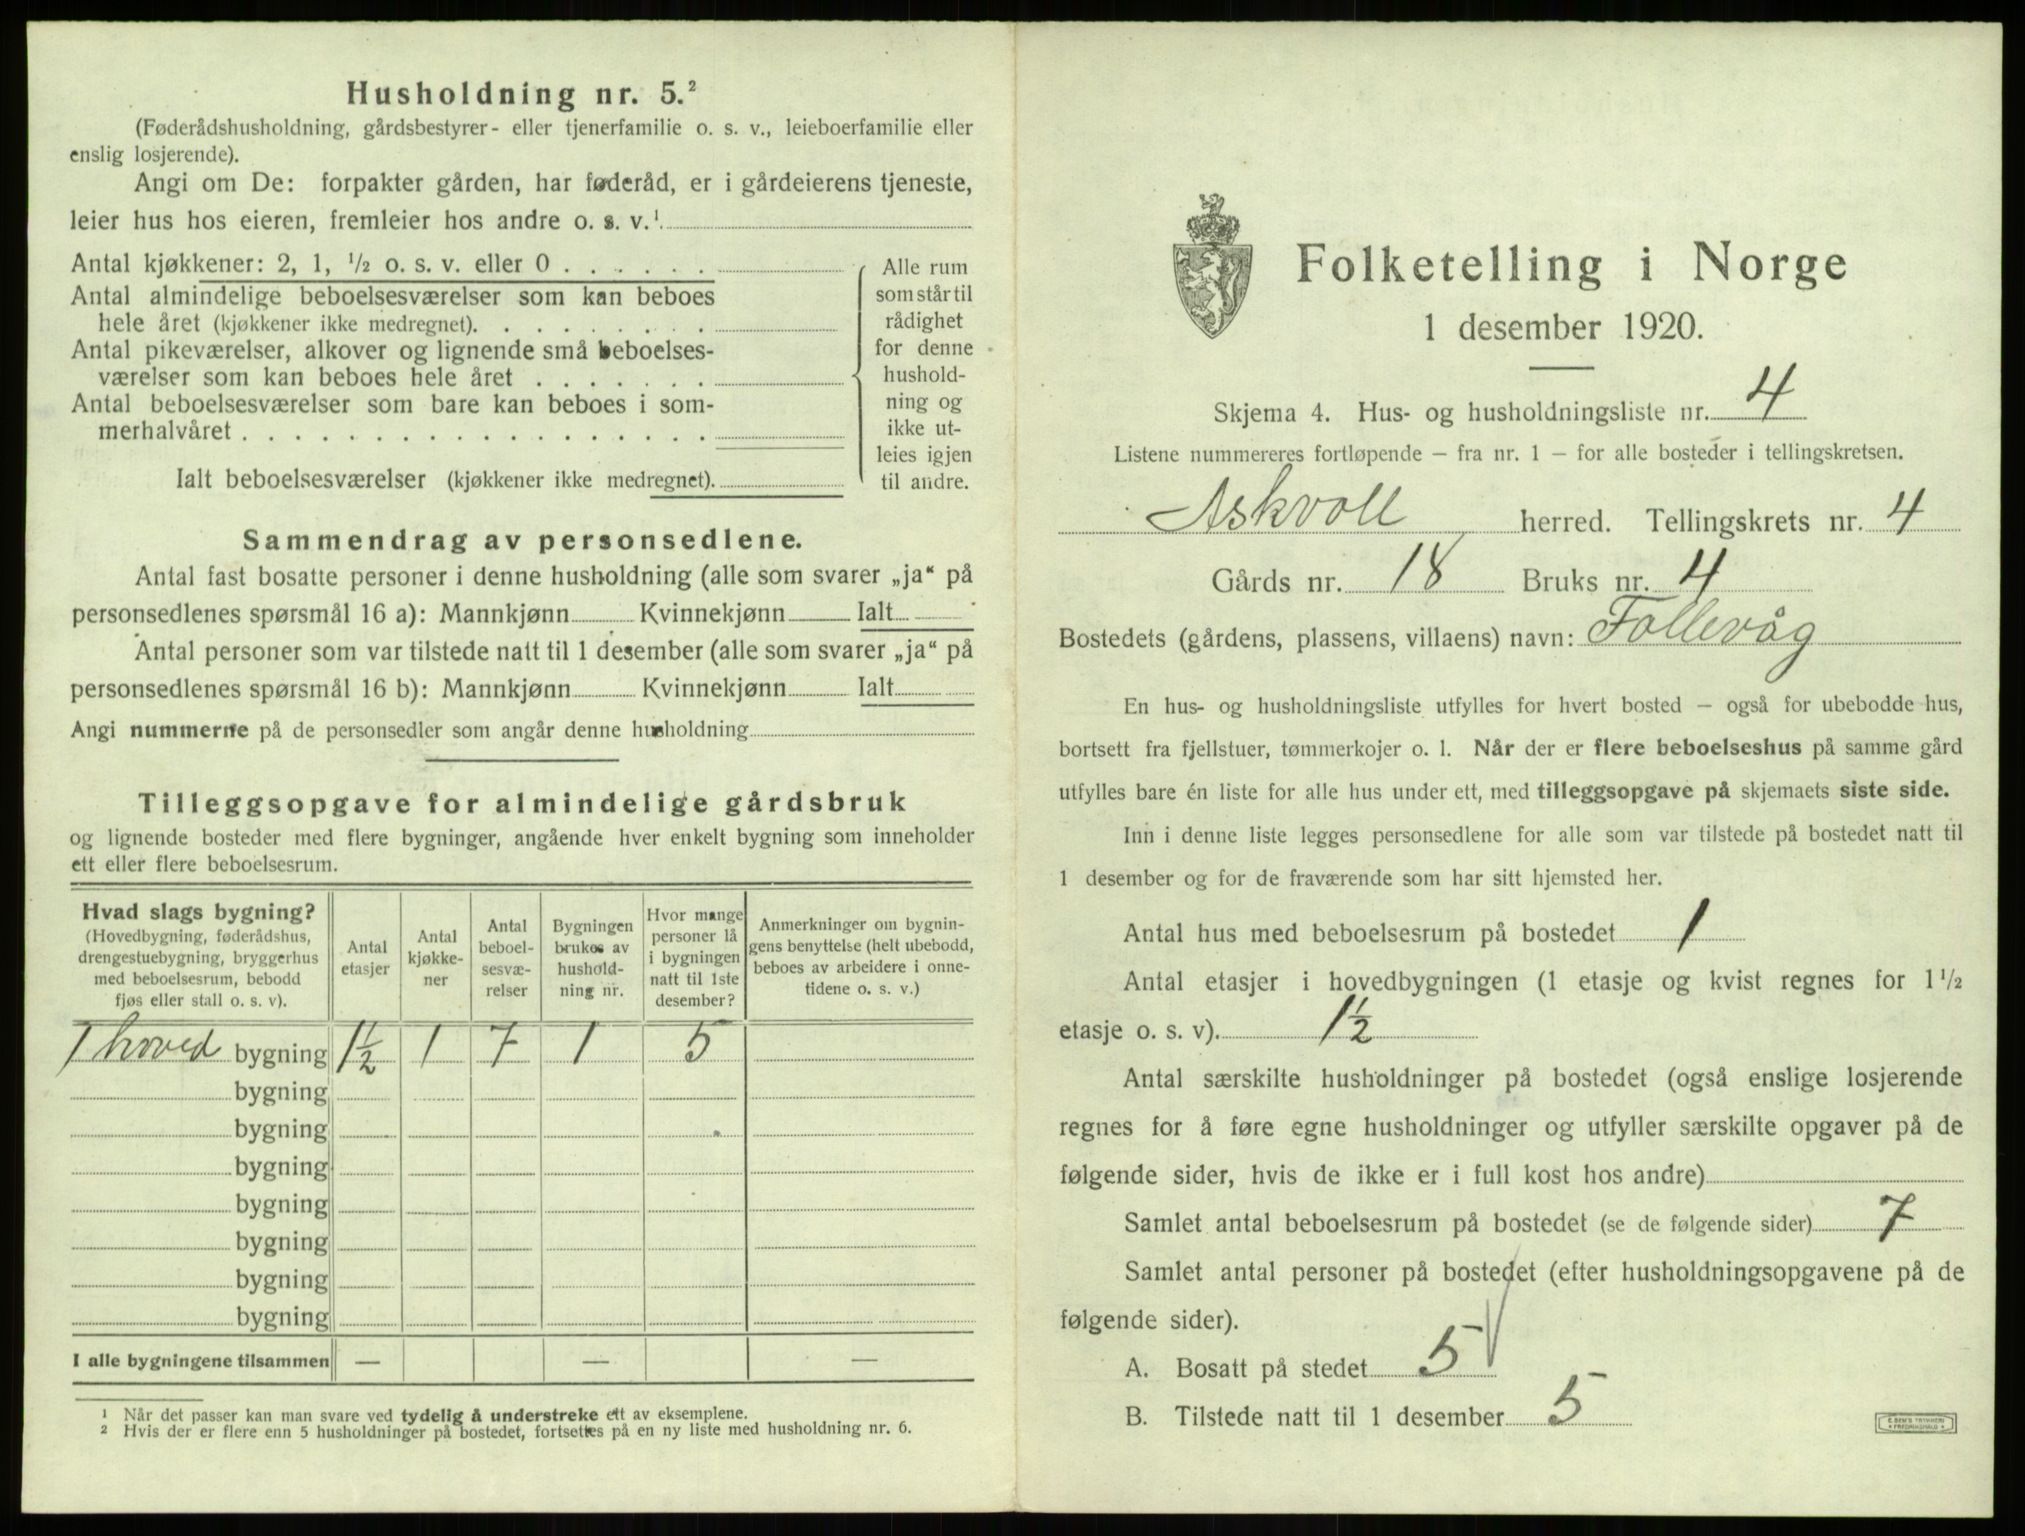 Husholdning nr. 5.²
(Føderådshusholdning, gårdsbestyrer- eller tjenerfamilie o. s. v., leieboerfamilie eller
enslig losjerende).
Angi om De: forpakter gården, har føderåd, er i gårdeierens tjeneste,
leier hus hos eieren, fremleier hos andre o. s. v.¹
Antal kjøkkener: 2, 1, ½ o. s. v. eller 0 . . . . . .
Antal almindelige beboelsesværelser som kan beboes
hele året (kjøkkener ikke medregnet). . . . . . . . .
Antal pikeværelser, alkover og lignende små beboelses-
værelser som kan beboes hele året . . . . . . .
Antal beboelsesværelser som bare kan beboes i som-
merhalvåret . . . . . . . . . . . . . . . . . .
Ialt beboelsesværelser (kjøkkener ikke medregnet).
Alle rum
som står til
rådighet
for denne
hushold-
ning og
ikke ut-
leies igjen
til andre.
Sammendrag av personsedlene.
Antal fast bosatte personer i denne husholdning (alle som svarer „ja“ på
personsedlenes spørsmål 16 a): Mannkjønn Kvinnekjønn Ialt
Antal personer som var tilstede natt til 1 desember (alle som svarer „ja“ på
personsedlenes spørsmål 16 b): Mannkjønn Kvinnekjønn Ialt
Angi nummerne på de personsedler som angår denne husholdning
Tilleggsopgave for almindelige gårdsbruk
og lignende bosteder med flere bygninger, angående hver enkelt bygning som inneholder
ett eller flere beboelsesrum.
Hvad slags bygning?
(Hovedbygning, føderådshus,
drengestuebygning, bryggerhus
med beboelsesrum, bebodd
fjøs eller stall o. s. v).
Antal
etasjer
Antal
kjøkke-
ner
Antal
beboel-
sesvæ-
relser
Bygningen
brukes av
hushold-
ning nr.
Hvor mange
personer lå
i bygningen
natt til 1ste
desember?
Anmerkninger om bygnin-
gens benyttelse (helt ubebodd,
beboes av arbeidere i onne-
tidene o. s. v.)
1 hoved bygning 1½ 1 7 1 5
bygning
bygning
bygning
bygning
bygning
bygning
bygning
I alle bygningene tilsammen — — —
¹ Når det passer kan man svare ved tydelig å understreke ett av eksemplene.
² Hvis der er flere enn 5 husholdninger på bostedet, fortsettes på en ny liste med husholdning nr. 6.
Folketelling i Norge
1 desember 1920.
Skjema 4. Hus- og husholdningsliste nr. 4
Listene nummereres fortløpende – fra nr. 1 – for alle bosteder i tellingskretsen.
Askvoll herred. Tellingskrets nr. 4
Gårds nr. 18 Bruks nr. 4
Bostedets (gårdens, plassens, villaens) navn: Follevåg
En hus- og husholdningsliste utfylles for hvert bosted – også for ubebodde hus,
bortsett fra fjellstuer, tømmerkojer o. l. Når der er flere beboelseshus på samme gård
utfylles bare én liste for alle hus under ett, med tilleggsopgave på skjemaets siste side.
Inn i denne liste legges personsedlene for alle som var tilstede på bostedet natt til
1 desember og for de fraværende som har sitt hjemsted her.
Antal hus med beboelsesrum på bostedet 1
Antal etasjer i hovedbygningen (1 etasje og kvist regnes for 1½
etasje o. s. v). 1½
Antal særskilte husholdninger på bostedet (også enslige losjerende
regnes for å føre egne husholdninger og utfyller særskilte opgaver på de
følgende sider, hvis de ikke er i full kost hos andre)
Samlet antal beboelsesrum på bostedet (se de følgende sider) 7
Samlet antal personer på bostedet (efter husholdningsopgavene på de
følgende sider).
A. Bosatt på stedet 5
B. Tilstede natt til 1 desember 5